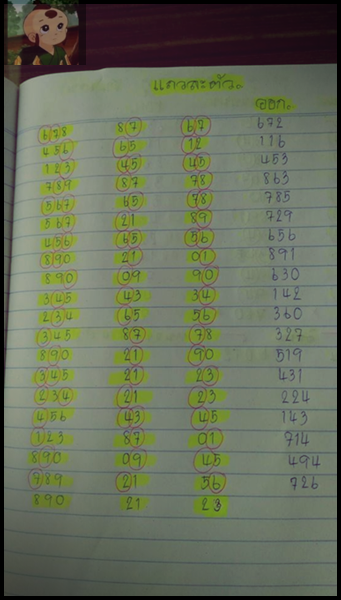 แถวละตัว.
ออก.
678 87 67 672
456 65 12 116
123 45 45 453
789 87 78 863
567 65 78 785
567 21 89 729
456 65 56 656
890 21 01 891
890 09 90 630
345 43 34 142
234 65 56 360
345 87 78 327
890 21 90 519
345 21 23 431
234 21 23 224
456 43 45 143
123 87 01 714
890 09 45 494
789 21 56 726
890 21 23